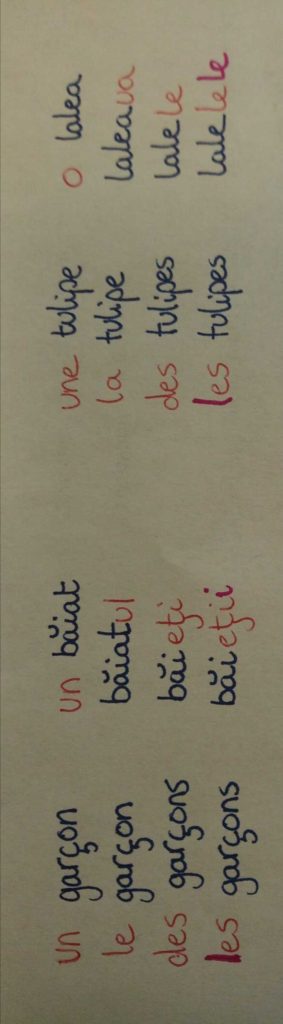 un garçon un băiat une tulipe o lalea
le garçon băiatul la tulipe laleaua
des garçons băieţi des tulipes lalele
les garçons băieţii les tulipes lalelele